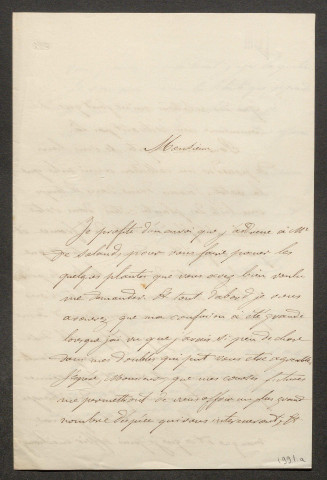 Monsieur,
Je profite d'un envoi que j'adresse à Mr
de Salands pour vous faire passer les
quelques plantes que vous avez bien voulu
me demander. Et tout d'abord je vous
avouerez, que ma confusion à été grande
lorsque j'ai vu que j'avais si peu de chose
dans mes doubles qui put vous être agréable
J'espère, Monsieur, que mes courses futures
me permettront de vous offrir un plus grand
nombre d'espèces qui vous intéressent, et
1991.a